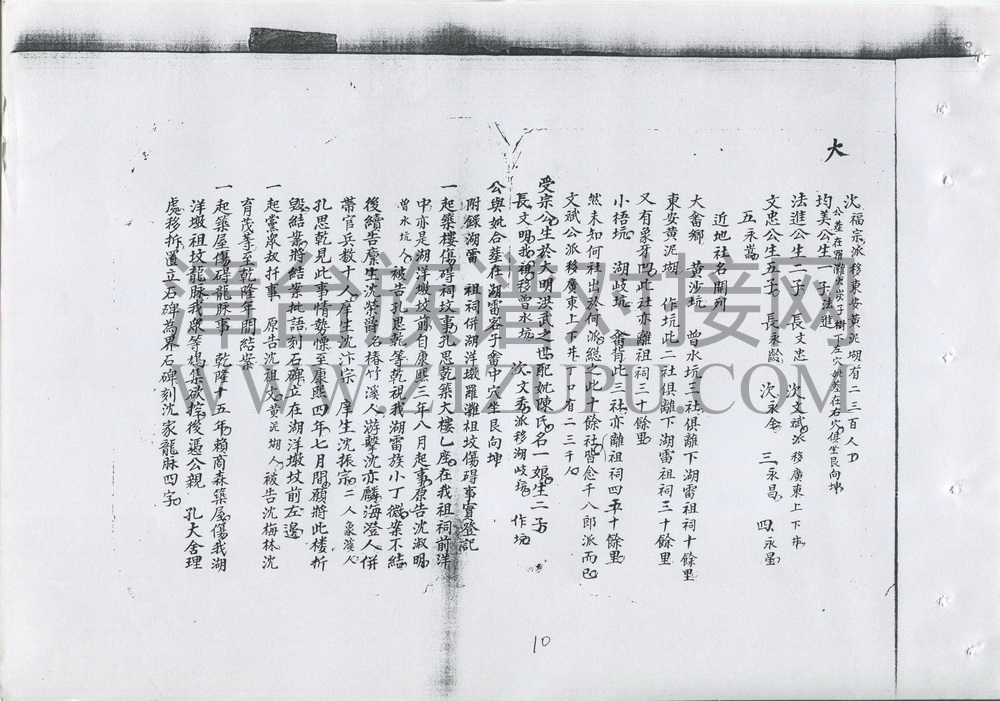 大
次福宗派移東安黃泥湖有二三百人口
均美公生一子法進
公葬在羅灘東崁子樹下左穴妣葬在右穴俱坐艮向坤
法進公生二子 長文忠 次文斌派移廣東上下井
文忠公生五子 長永齡 次永金 三永昌 四永星
五永嵩
近地社名開列
大畬鄉 黃沙坑 曾水坑三社俱離下湖雷祖祠十餘里
東安黃泥湖 作坑此二社俱離下湖雷祖祠三十餘里
又有象牙凹此社亦離祖祠三十餘里
小梧坑 湖歧坑 畬背此三社亦離祖祠四五十餘里
然未知何社出於何派總之此十餘社皆念千八郎派而已
文斌公派移廣東上下井 口有二三千人
受宗公生於大明洪武之世配妣陳氏名一娘生二子
長文明我祖移曾水坑 次文秀派移湖歧坑 作坑
公與妣合葬在湖雷客子畬中穴坐艮向坤
附錄湖雷 祖祠併湖洋墩羅灘祖坟傷碍事實登記
一起築樓傷碍祠坟事孔思乾築大樓乙座在我祖祠前洋
中亦是湖洋墩坟前自康熙三年八月起事原告沈淑明
曾水坑人被告孔思乾等乾視我湖雷族小丁微案不結
後續告廩生沈榮爵名椿竹溪人游擊沈亦麟海澄人併
帶官兵數十人庠生沈汴宗 庠生沈振宗二人象溪人
孔思乾見此事情勢慄至康熙四年七月間願將此楼折
毀結案將結案批語刻石碑立在湖洋墩坟前左邊
一起黨眾奴扦事 原告沈祖文黃泥湖人被告沈梅林沈
育茂等至乾隆年間結案
一起築屋傷碍龍脈事 乾隆十五年賴商森築屋傷我湖
洋墩祖坟龍脈我眾等鳩集欲控後憑公親 孔大舍理
處移折置立石碑為界石碑刻沈家龍脉四字
10
清谷族谱对接网
WWW.ZIZUPU.COM